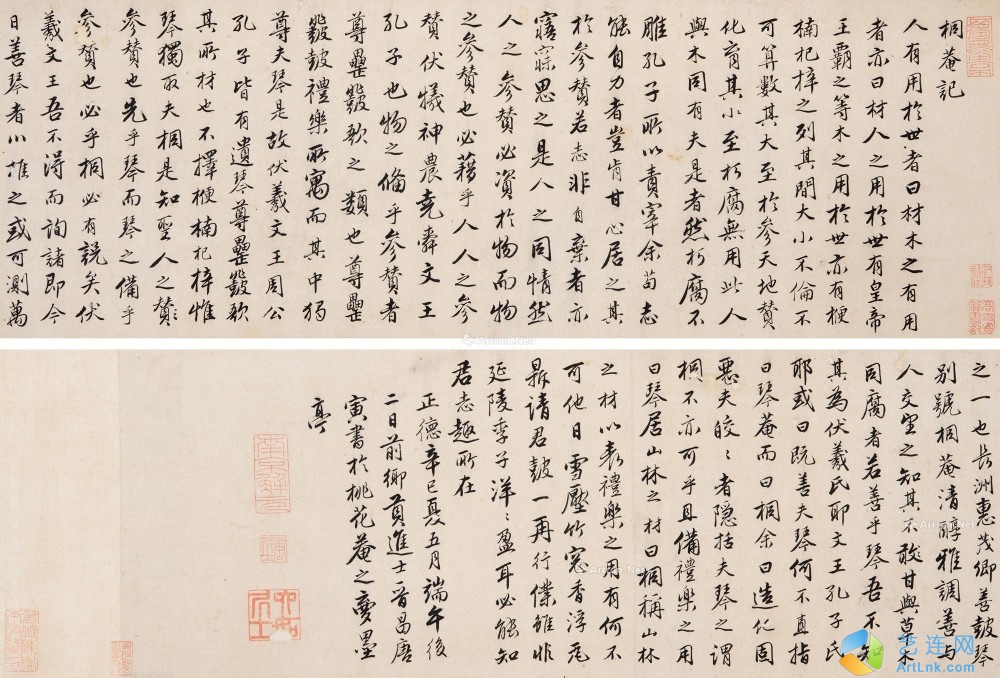 桐菴記
人有用於世者曰材木之有用
者亦曰材人之用於世有皇帝
王霸之等木之用於世亦有梗
楠杞梓之列其間大小不倫不
可算數其大至於參天地贊
化育其小至朽腐無用此人
與木同有夫是者然朽腐不
雕孔子所以責宰余苟志
能自力者豈肯甘心居之其
於參贊若志非自棄者亦
寤寐思之是人之同情然
人之參贊必資於物而物
之參贊也必藉乎人人之參
贊伏犧神農堯舜文王
孔子也物之備乎參贊者
尊罍鼗歌之類也尊罍
鼗鼓禮樂所寓而其中獨
尊夫琴是故伏羲文王周公
孔子皆有遺琴尊罍鼗歌
其所材也不擇梗楠杞梓惟
琴獨取夫桐是知聖人之贊
參贊也先乎琴而琴之備乎
參贊也必乎桐必有說矣伏
羲文王吾不得而詢諸即今
日善琴者以推之或可測萬
之一也長洲惠茂卿善鼓琴
別號桐菴清醇雅調善與
人交望之知其不敢甘與草木
同腐者若善乎琴吾不知
其為伏羲氏耶文王孔子氏
耶或曰既善夫琴何不直指
曰琴菴而曰桐余曰造化固
惡夫皎々者隱括夫琴之謂
桐不亦可乎且備禮樂之用
曰琴居山林之材曰桐稱山林
之材以表禮樂之用有何不
可他日雪壓竹窓香浮瓦
鼎請君鼓一再行僕雖非
延陵季子洋々盈耳必能知
君志趣所在
正德辛巳夏五月端午後
二日前鄉貢進士晉昌唐
寅書於桃花菴之夢墨
亭
南京解元
六如居士
艺连网
ArtLnk.com
Artron.Net